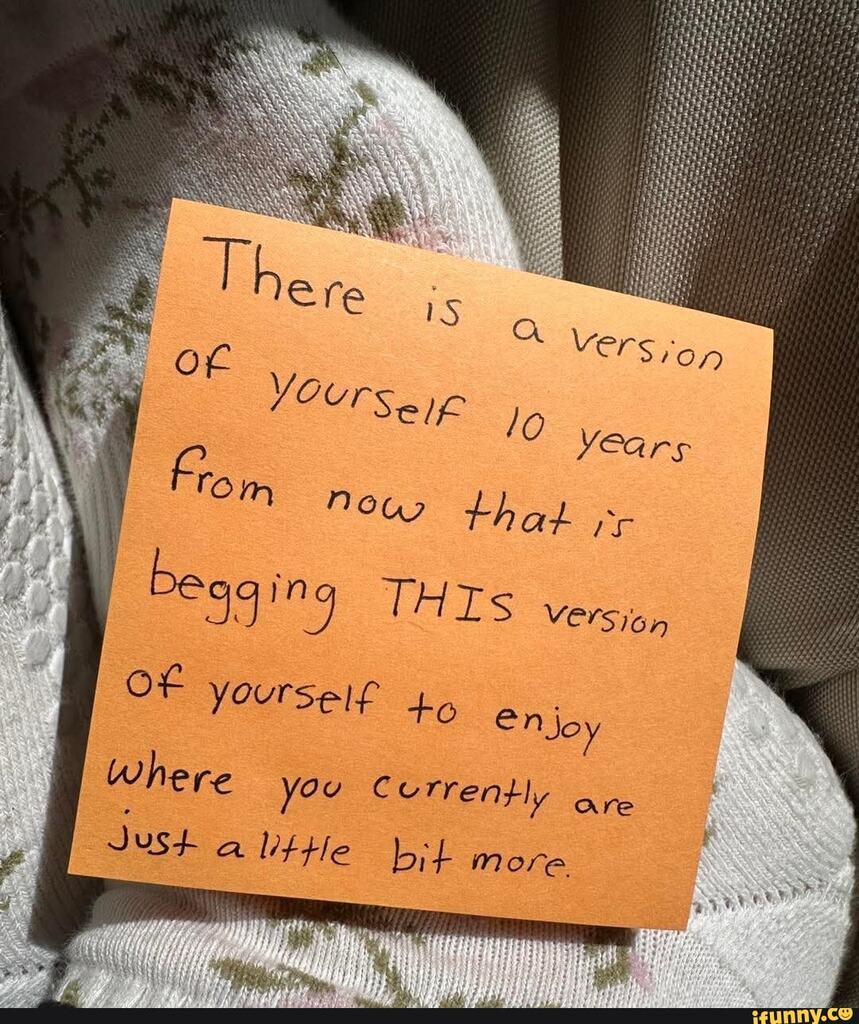 There is a version
of yourself 10 years
from now that is
begging THIS version
of yourself to enjoy
where you currently are
just a little bit more.
ifunny.co